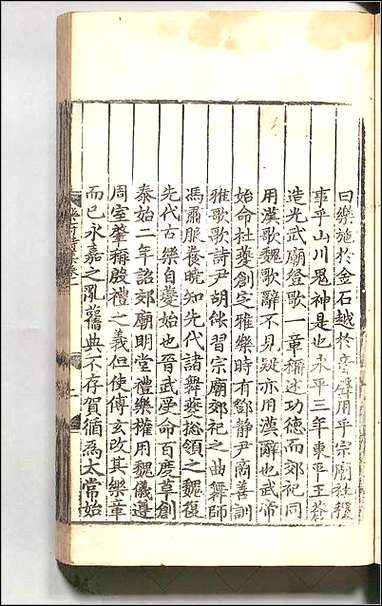 曰樂施於金石越於音聲用乎宗廟社稷
事乎山川鬼神是也永平三年東平王蒼
造光武廟登歌一章稱述功德而郊祀同
用漢歌魏歌辭不見疑亦用漢辭也武帝
始命杜夔創定雅樂時有鄧靜尹商善訓
雅歌歌詩尹胡能習宗廟郊祀之曲舞師
馮肅服養曉知先代諸舞夔摠領之魏復
先代古樂自夔始也晉武受命百度草創
泰始二年詔郊廟明堂禮樂權用魏儀遵
周室肇稱殷禮之義但使傅玄改其樂章
而已永嘉之亂舊典不存賀循為太常始